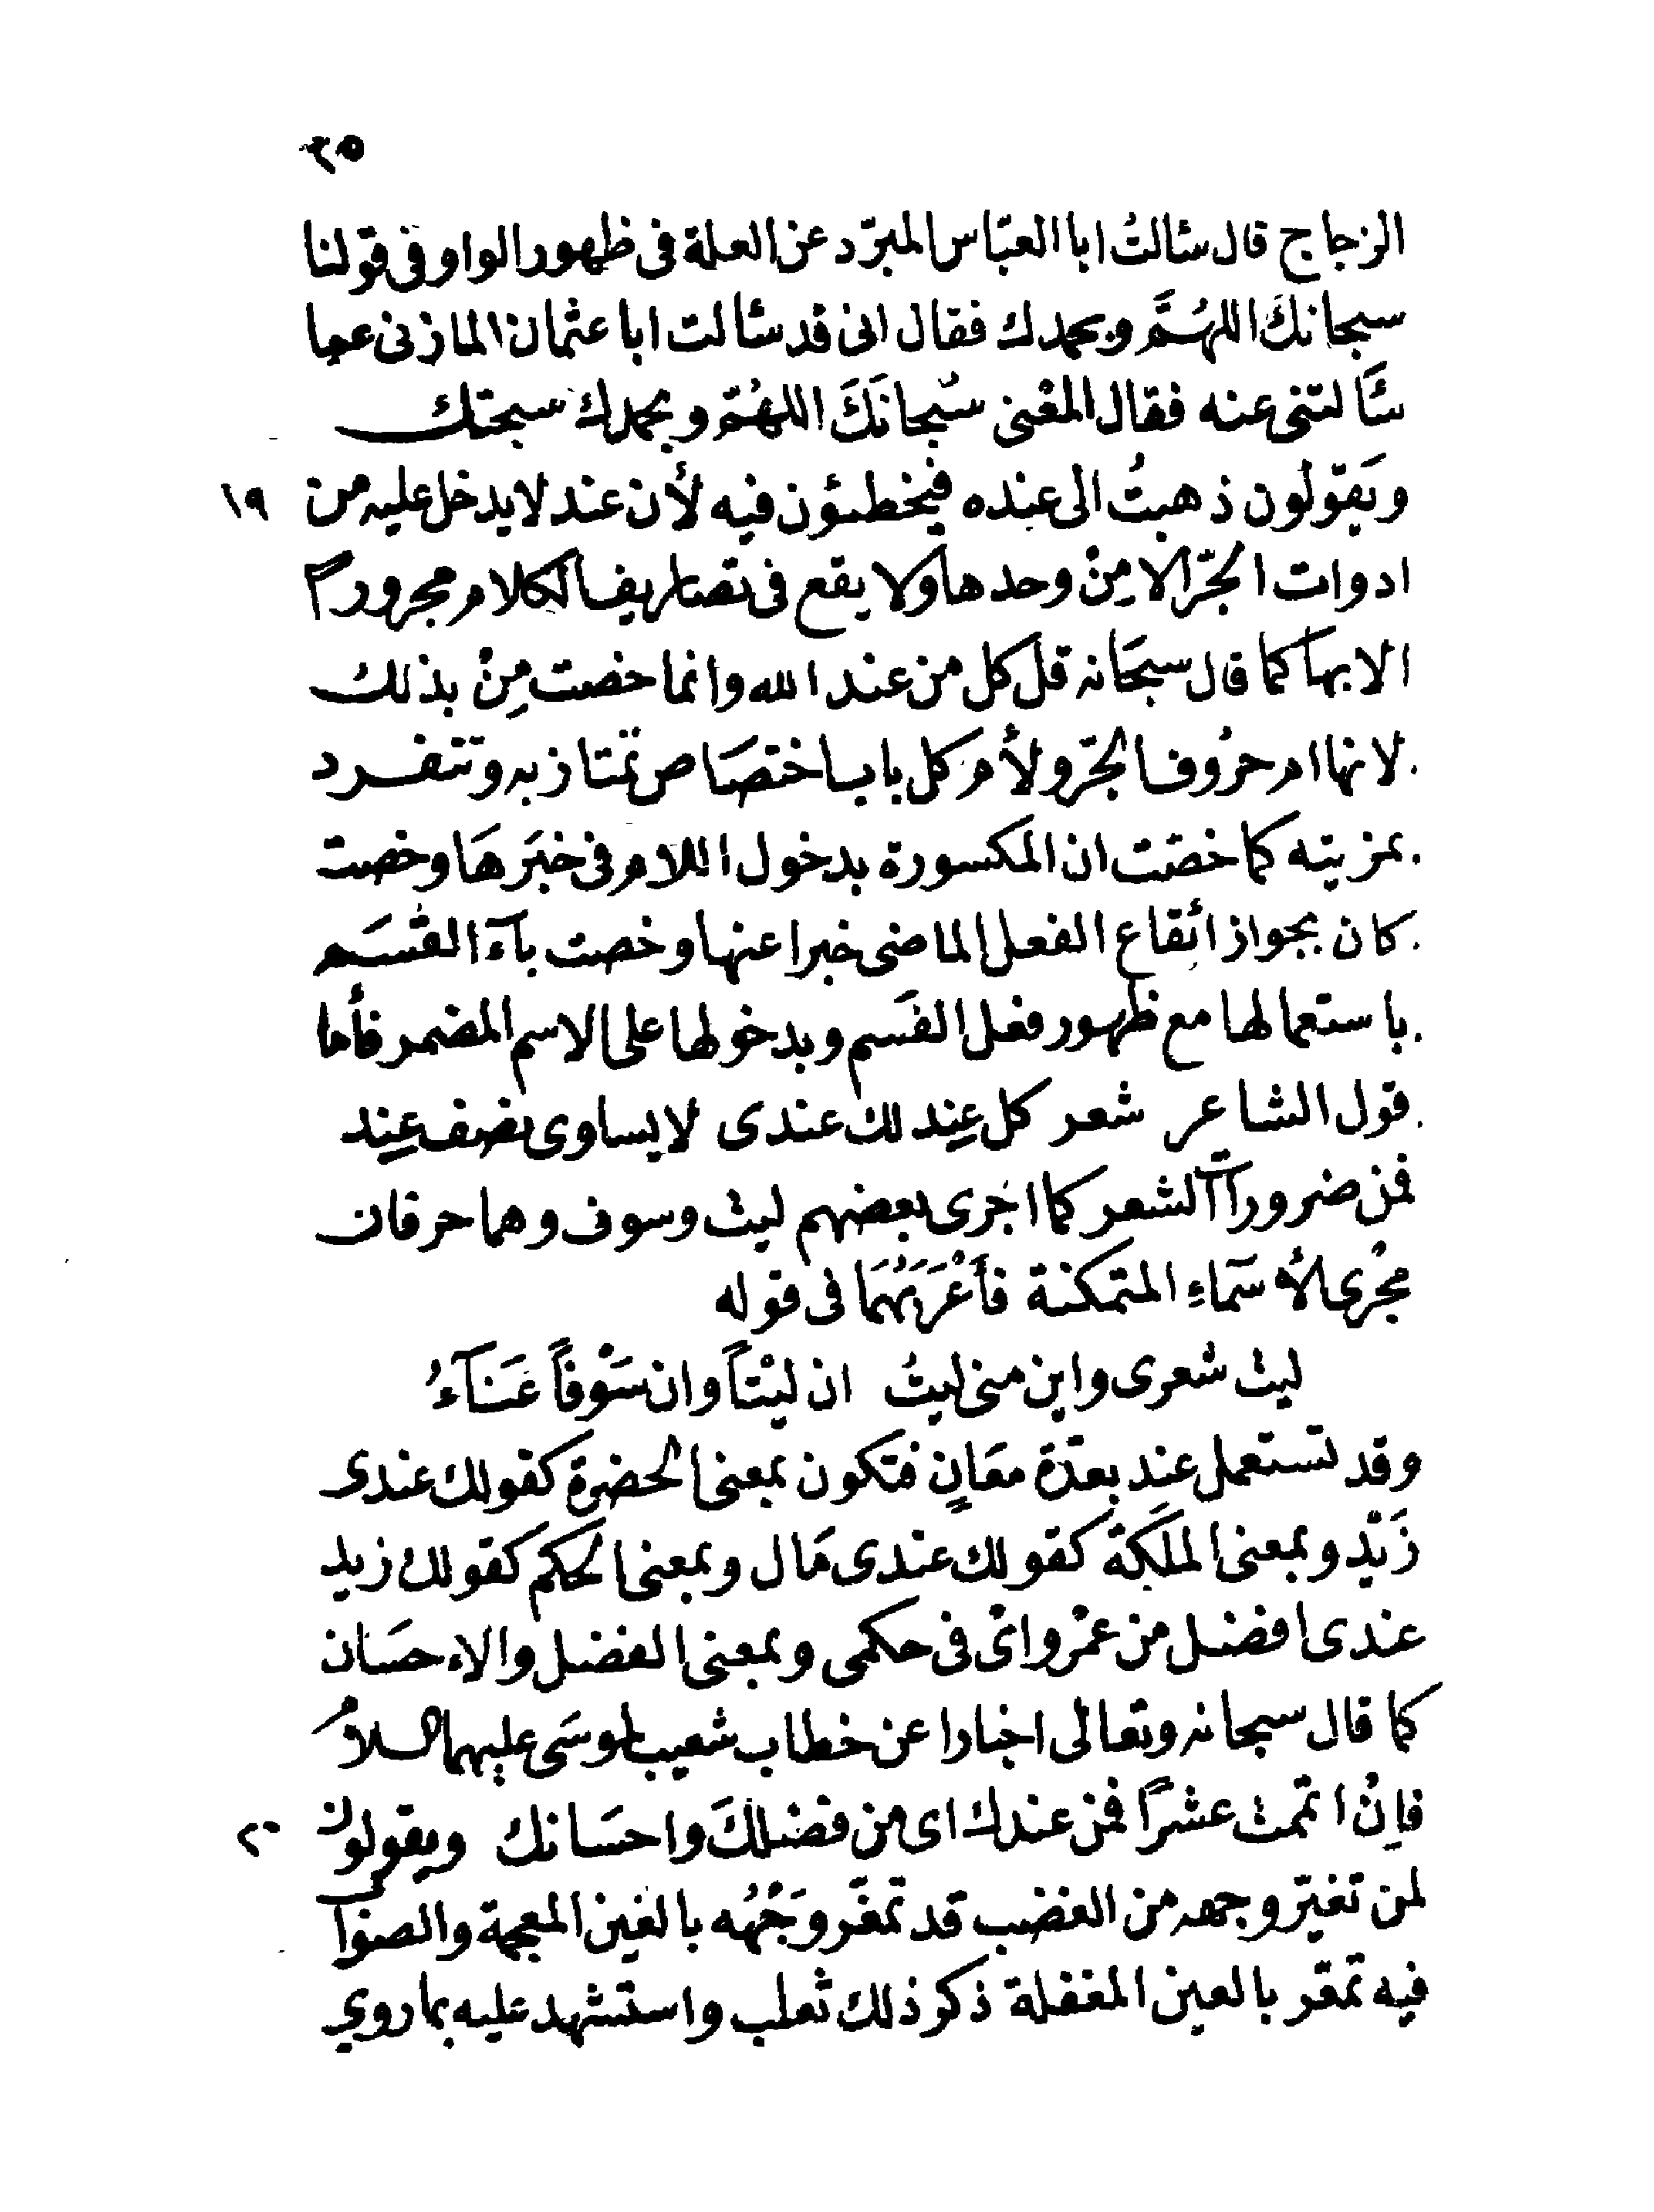 ٢٥
الزجاج قال سئالتُ ابا العبّاس المبرّد عن العلة فى ظهور الواو فى قولنا
سبحانكَ اللهُمَّ وبحمدك فقال انى قد سئالت ابا عثمان المازنى عما
سئَالتنى عنه فقال المعْنى سُبحانَكَ اللهُمّ وبحمدك سبحتك
ويَقولون ذهبتُ الى عنده فيخطئون فيه لأن عند لا يدخل عليه من ١٩
ادوات الجرّ الا مِنْ وحدها ولا يقع فى تصاريف الكلام مجرورًا
الا بها كما قال سبحَانه قل كل من عند الله وانما خصت مِنْ بذلك
لانها ام حرُوف الجرّ ولأم كل باب اختصَاص تمتاز به وتنفرد
بمزيته كما خصّت ان المكسورة بدخول اللام فى خبَرهَا وخصت
كان بجواز ائقاع الفعل الماضى خبرا عنها وخصت بآءَ القسَم
باستعمالها مع ظهور فعل القَسم وبدخولها على الاسم المضمر فأما
قول الشاعر شعر كل عِند لك عندى لا يساوى نصف عِند
فمن ضروراآت الشعر كما اجرى بعضهم ليت وسوف وهما حرفان
مجْرى الأسمَاءِ المتمكنة فأَعْرَبَهُمَا فى قوله
ليت شعرى واين منى ليتُ ان ليْتاً وان سَوْفاً عَنَآءُ
وقد تستعمل عند بعدّة معَانٍ فتكون بمعنى الحضرة كقولك عندى
زَيْد وبمعنى الملَكة كقولك عندى مَال وبمعنى الحكم كقولك زيد
عندى افضل من عمْرو اىْ فى حكمى وبمعنى الفضل والاءحسَان
كما قال سبحانه وتعالى اخبارا عن خطاب شعيب لموسَى عليهما السلامُ
فاِنْ اتممت عشرًا فمن عندك اى من فضلكَ واحسَانك ويقولون ٢٠
لمن تغيّر وجهه من الغضب قد تمغّر وَجْهُه بالغين المعجمة والصوَاب
فيه تمعّر بالعين المغفلة ذكر ذلك ثعلب واستشهد عليه بما روي